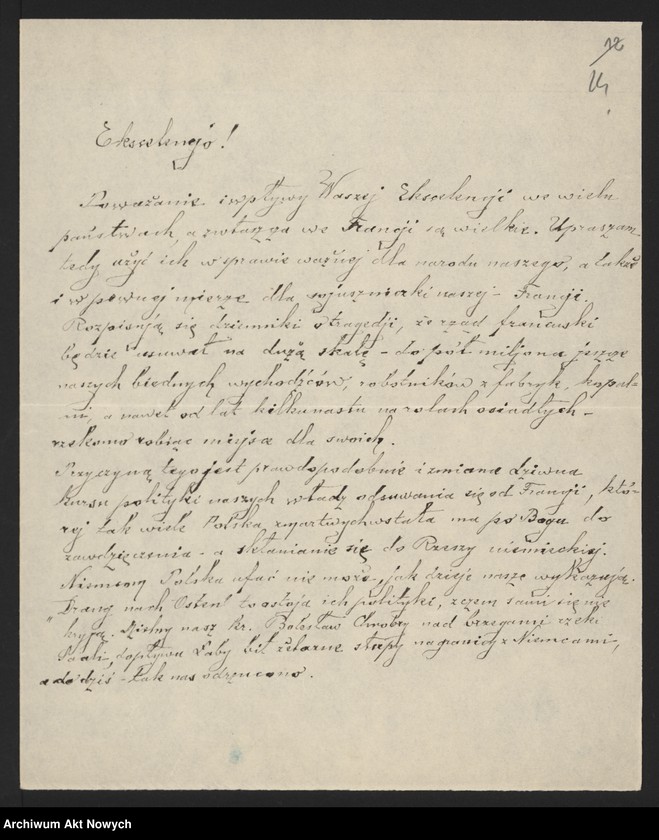 12
14
Ekscelencjo!
Poważanie i wpływy Waszej Ekscelencji we wielu
państwach, a zwłaszcza we Francji są wielkie. Upraszam
tedy użyć ich w sprawie ważnej dla narodu naszego, a także
i w pewnej mierze dla sojuszniczki naszej - Francji.
Rozpisują się dzienniki o tragedji, że rząd francuski
będzie usuwał na dużą skalę - do pół miljona jeszcze
naszych biednych wychodźców, robotników z fabryk, kopal-
ni, a nawet od lat kilkunastu na rolach osiadłych -
rzekomo robiąc miejsca dla swoich.
Przyczyną tego jest prawdopodobnie i zmiana dziwna
kursu polityki naszych władz odsuwania się od Francji, któ-
rej tak wiele Polska zmartwychwstała ma po Bogu do
zawdzięczenia - a skłanianie się do Rzeszy niemieckiej.
Niemcom Polska ufać nie może, jak dzieje nasze wykazują.
"Drang nach Osten" to ostoja ich polityki, z czem sami się nie
kryją. Dzielny nasz kr. Bolesław Chrobry nad brzegami rzeki
Saali, dopływu Łaby bił żelazne słupy na granicy z Niemcami,
a do dziś - tak nas odrzucono.
Archiwum Akt Nowych